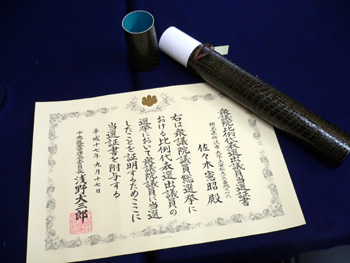 衆議院比例代表選出議員当選証書
佐々木憲昭 殿
右は衆議院議員総選挙に
おける比例代表選出議員の
選挙において衆議院議員に当選
したことを証明するためここに
当選証書を付与する
平成十七年九月十七日
中央選挙管理会委員長 浅野大三郎